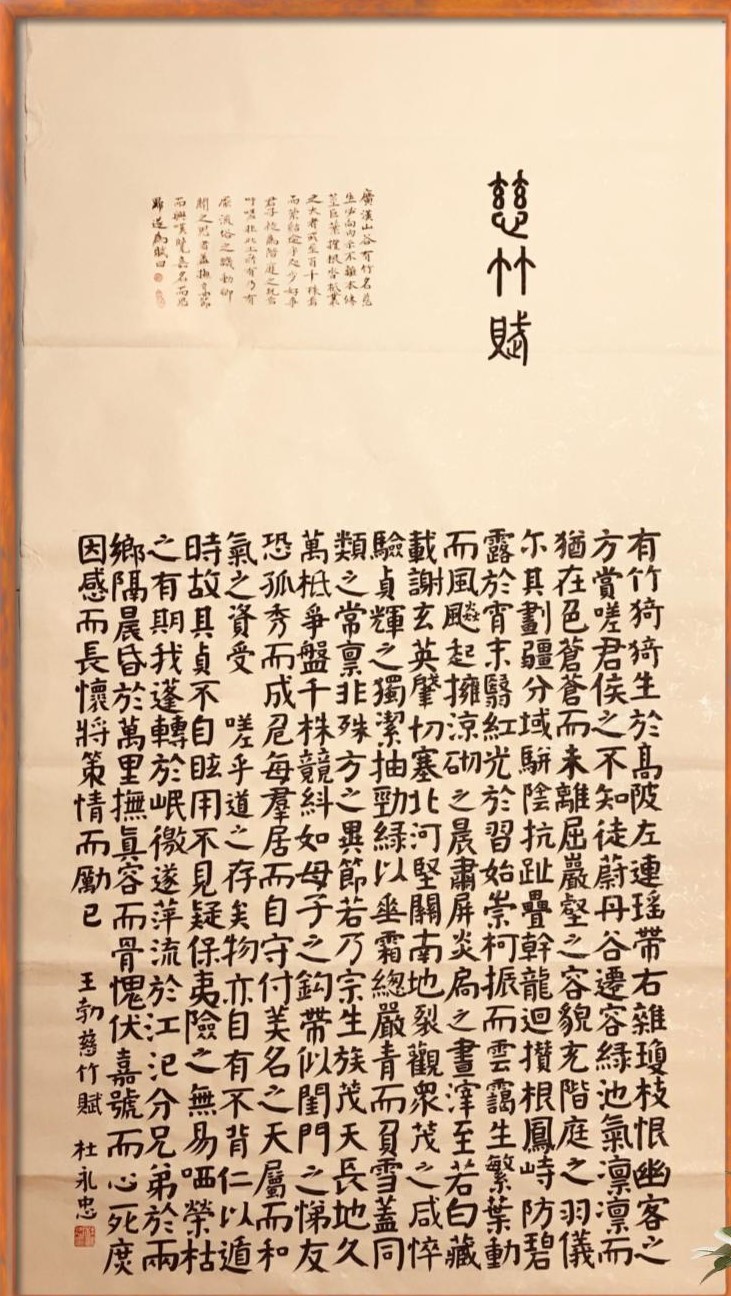 慈竹賦
廣漢山谷有竹名慈
生必向内示不離本修
莖巨葉攢根沓柢叢
之大者或至百千株焉
而縈結逾乎咫步好事
君子徙為階庭之玩焉
吁嗟非此土所有乃有
厭流俗之譏動鄉
關之思者盖撫高節
而興嘆覽嘉名而思
歸遂為賦曰
有竹猗猗生於高陂左連瑤帶右雜瓊枝恨幽客之
方賞嗟君侯之不知徒蔚丹谷遷容綠池氣凛凛而
猶在色蒼蒼而未離屈巖壑之容貌充階庭之羽儀
尔其劃疆分域駢陰抗趾疊幹龍迴攢根鳳峙防碧
露於宵末翳紅光於習始崇柯振而雲靄生繁葉動
而風飈起擁涼砌之晨肅屏炎扃之晝滓至若白藏
載謝玄英肇切塞北河堅關南地裂觀衆茂之咸悴
驗貞輝之獨潔抽勁綠以垂霜緫嚴青而負雪蓋同
類之常禀非殊方之異節若乃宗生族茂天長地久
萬柢爭盤千株競糾如母子之鈎帶似閨門之悌友
恐孤秀而成危每羣居而自守付美名之天屬而和
氣之資受 嗟乎道之存矣物亦自有不背仁以遁
時故其貞不自眩用不見疑保夷險之無易哂榮枯
之有期我蓬轉於岷徼遂萍流於江汜分兄弟於兩
鄉隔晨昏於萬里撫真容而骨愧伏嘉號而心死庶
因感而長懷將策情而勵己
王勃慈竹賦 杜永忠